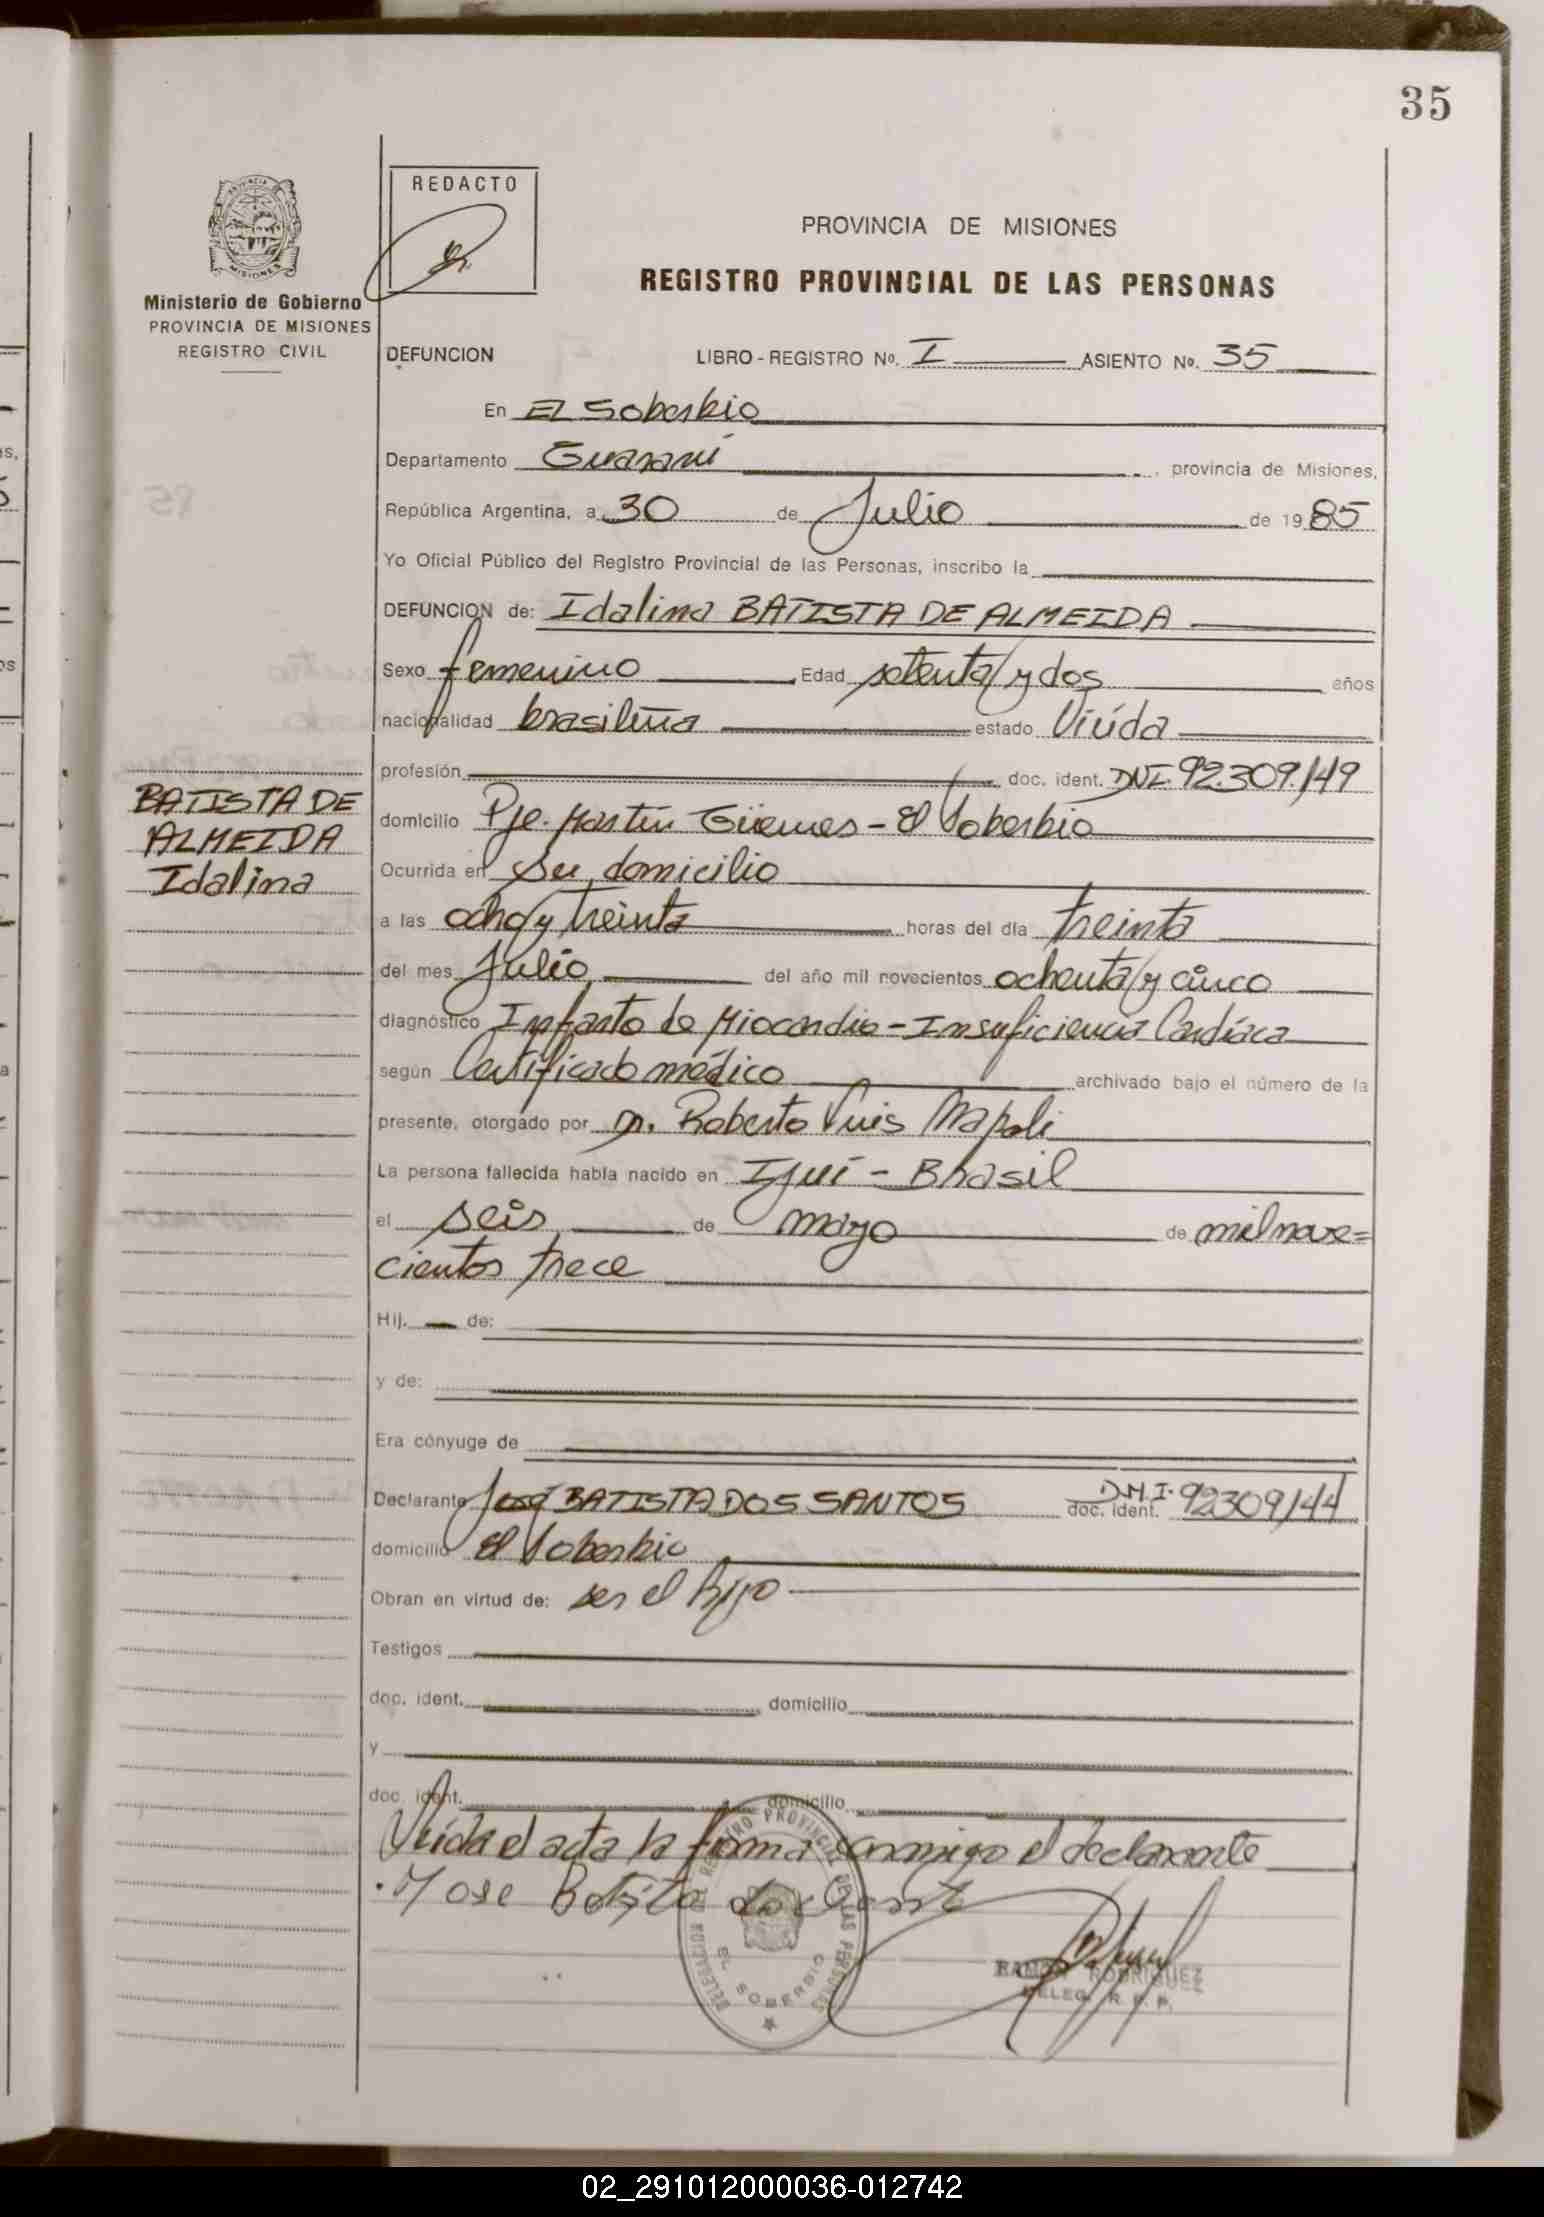 35
PROVINCIA
MISIONES
Ministerio de Gobierno
PROVINCIA DE MISIONES
REGISTRO CIVIL
REDACTO
PROVINCIA DE MISIONES
REGISTRO PROVINCIAL DE LAS PERSONAS
DEFUNCION LIBRO - REGISTRO Nº. I ASIENTO Nº. 35
En El Soberbio
Departamento Guaraní, provincia de Misiones,
República Argentina, a 30 de Julio de 1985
Yo Oficial Público del Registro Provincial de las Personas, inscribo la
DEFUNCION de: Idalina BATISTA DE ALMEIDA
Sexo femenino Edad setenta y dos años
nacionalidad brasileña estado Viúda
profesión doc. ident. DNI. 92.309.149
BATISTA DE
ALMEIDA
Idalina
domicilio Pje. Martín Güemes - El Soberbio
Ocurrida en su domicilio
a las ocho y treinta horas del día treinta
del mes Julio del año mil novecientos ochenta y cinco
diagnóstico Infarto de Miocardio - Insuficiencia Cardíaca
según Certificado médico archivado bajo el número de la
presente, otorgado por Dr. Roberto Luis Napoli
La persona fallecida había nacido en Ijuí - Brasil
el seis de mayo de mil nove=
cientos trece
Hij. de:
y de:
Era cónyuge de
Declarante José BATISTA DOS SANTOS doc. ident. D.N.I. 92309144
domicilio El Soberbio
Obran en virtud de: ser el hijo
Testigos
doc. ident. domicilio
y
doc. ident. domicilio
Leída el acta la firma conmigo el declarante
Jose Batista dos Sant
DELEGACION DEL REGISTRO PROVINCIAL DE LAS PERSONAS
EL SOBERBIO
RAMON RODRIGUEZ
DELEG. R. P. P.
02_291012000036-012742